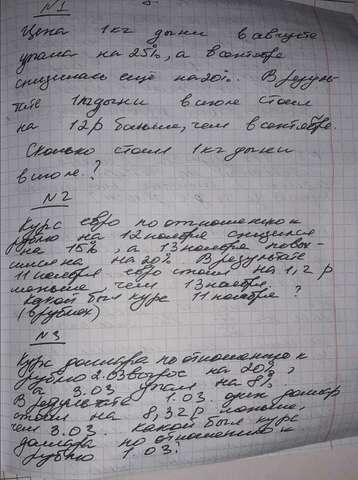 N1
Цена 1 кг дыни в августе
упала на 25%, а в сентябре
снизилась ещё на 20%. В резуль-
тате 1 кг дыни в июле стоил
на 12 р больше, чем в сентябре.
Сколько стоил 1 кг дыни
в июле?
N2
Курс евро по отношению к
рублю на 12 ноября снизился
на 15%, а 13 ноября повы-
сился на 20%. В результате
11 ноября евро стоил на 1,2 р
меньше, чем 13 ноября.
Какой был курс 11 ноября?
(в рублях)
N3
Курс доллара по отношению к
рублю 2.03 вырос на 20%,
а 3.03 упал на 8%.
В результате 1.03. один доллар
стоил на 8,32р меньше,
чем 3.03. Какой был курс
доллара по отношению к
рублю 1.03?